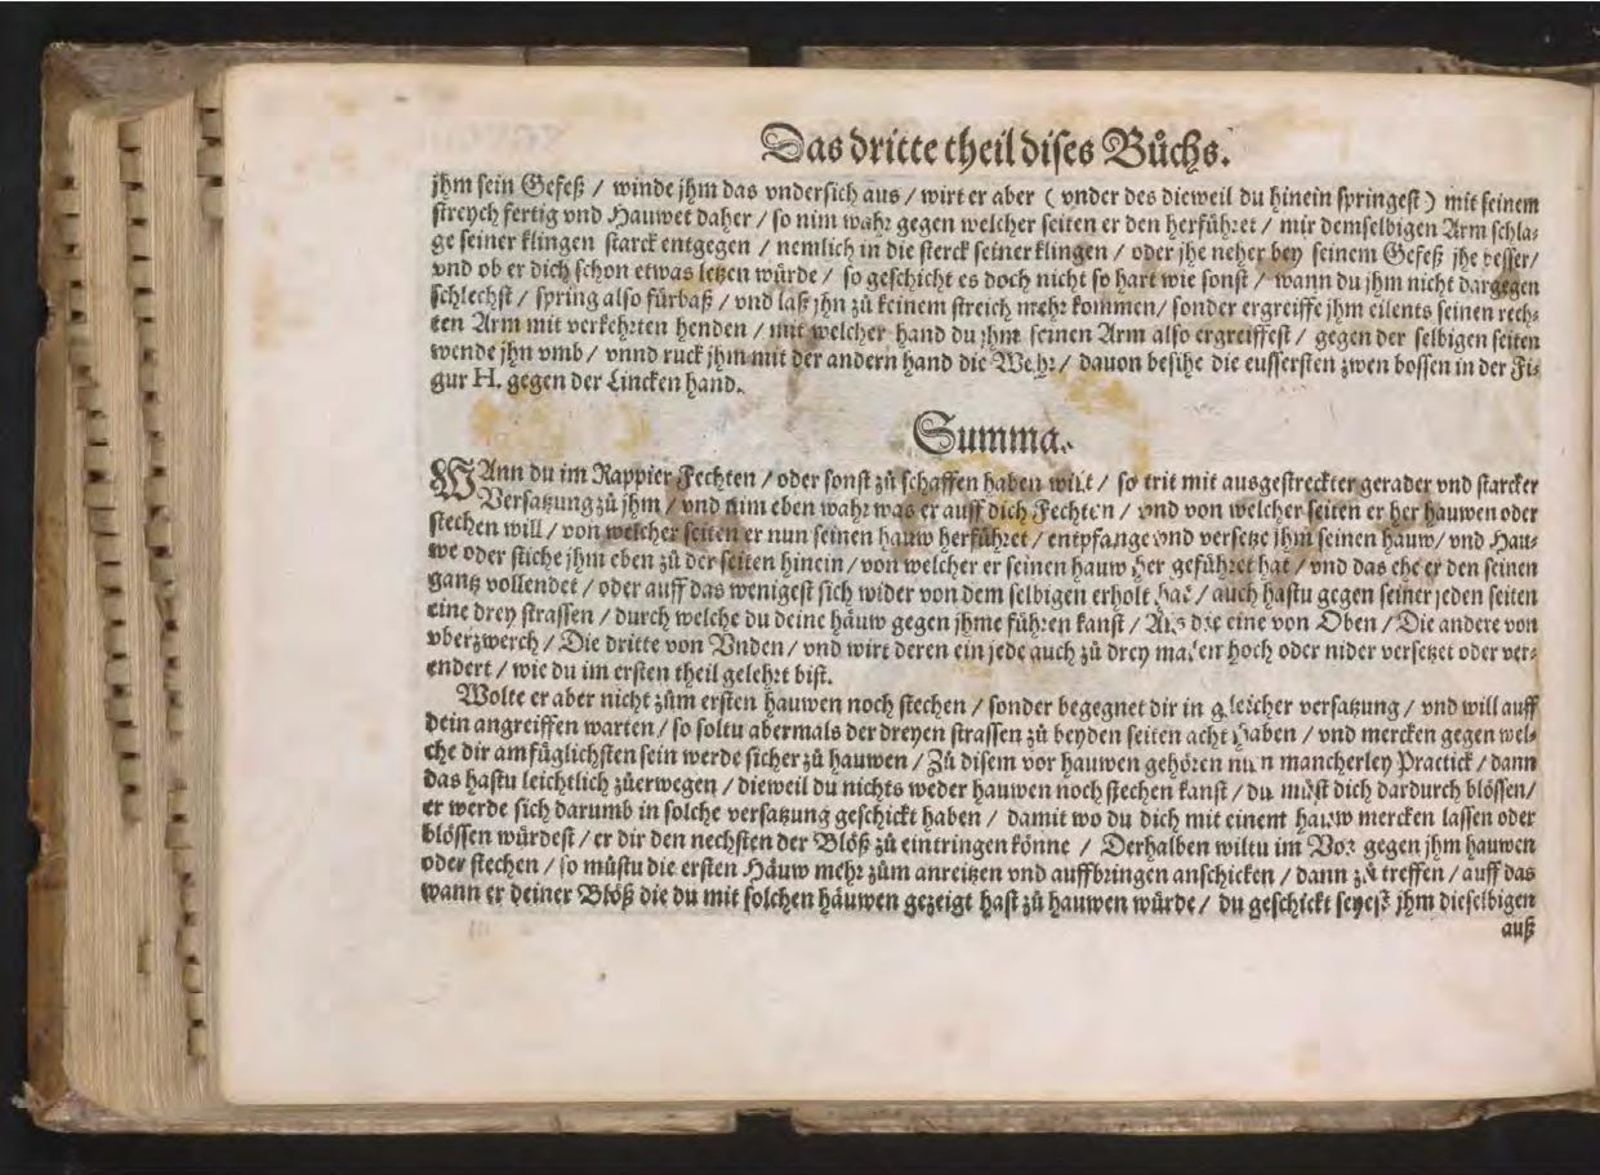 Das dritte theil dises Bůchs.
jhm sein Gefeß / winde jhm das vndersich aus / wirt er aber ( vnder des dieweil du hinein springest ) mit seinem
streych fertig vnd Hauwet daher / so nim wahr gegen welcher seiten er den herführet / mir demselbigen Arm schla⸗
ge seiner klingen starck entgegen / nemlich in die sterck seiner klingen / oder jhe neher bey seinem Gefeß jhe besser /
vnd ob er dich schon etwas letzen würde / so geschicht es doch nicht so hart wie sonst / wann du jhm nicht dargegen
schlechst / spring also fürbaß / vnd laß jhn zů keinem streich mehr kommen / sonder ergreiffe jhm eilents seinen rech⸗
ten Arm mit verkehrten henden / mit welcher hand du jhm seinen Arm also ergreiffest / gegen der selbigen seiten
wende jhn vmb / vnnd ruck jhm mit der andern hand die Wehr / dauon besihe die eussersten zwen bossen in der Fi⸗
gur H. gegen der Lincken hand.
Summa.
WAnn du im Rappier Fechten / oder sonst zů schaffen haben wilt / so trit mit ausgestreckter gerader vnd starcker
Versatzung zů jhm / vnd nim eben wahr was er auff dich Fechten / vnd von welcher seiten er her hauwen oder
stechen will / von welcher seiten er nun seinen hauw herführet / entpfange vnd versetze jhm seinen hauw / vnd Hau⸗
we oder stiche jhm eben zů der seiten hinein / von welcher er seinen hauw her geführet hat / vnd das ehe er den seinen
gantz vollendet / oder auff das wenigest sich wider von dem selbigen erholt hat / auch hastu gegen seiner jeden seiten
eine drey strassen / durch welche du deine häuw gegen jhme führen kanst / Als die eine von Oben / Die andere von
vberzwerch / Die dritte von Vnden / vnd wirt deren ein jede auch zů drey malen hoch oder nider versetzet oder ver⸗
endert / wie du im ersten theil gelehrt bist.
Wolte er aber nicht zům ersten hauwen noch stechen / sonder begegnet dir in gleicher versatzung / vnd will auff
dein angreiffen warten / so soltu abermals der dreyen strassen zů beyden seiten acht haben / vnd mercken gegen wel⸗
che dir am füglichsten sein werde sicher zů hauwen / Zů disem vor hauwen gehören nun mancherley Practick / dann
das hastu leichtlich zůerwegen / dieweil du nichts weder hauwen noch stechen kanst / du můst dich dardurch blössen /
er werde sich darumb in solche versatzung geschickt haben / damit wo du dich mit einem hauw mercken lassen oder
blössen würdest / er dir den nechsten der Blöß zů eintringen könne / Derhalben wiltu im Vor gegen jhm hauwen
oder stechen / so můstu die ersten Häuw mehr zům anreitzen vnd auffbringen anschicken / dann zů treffen / auff das
wann er deiner Blöß die du mit solchen häuwen gezeigt hast zů hauwen würde / du geschickt seyest jhm dieselbigen
auß